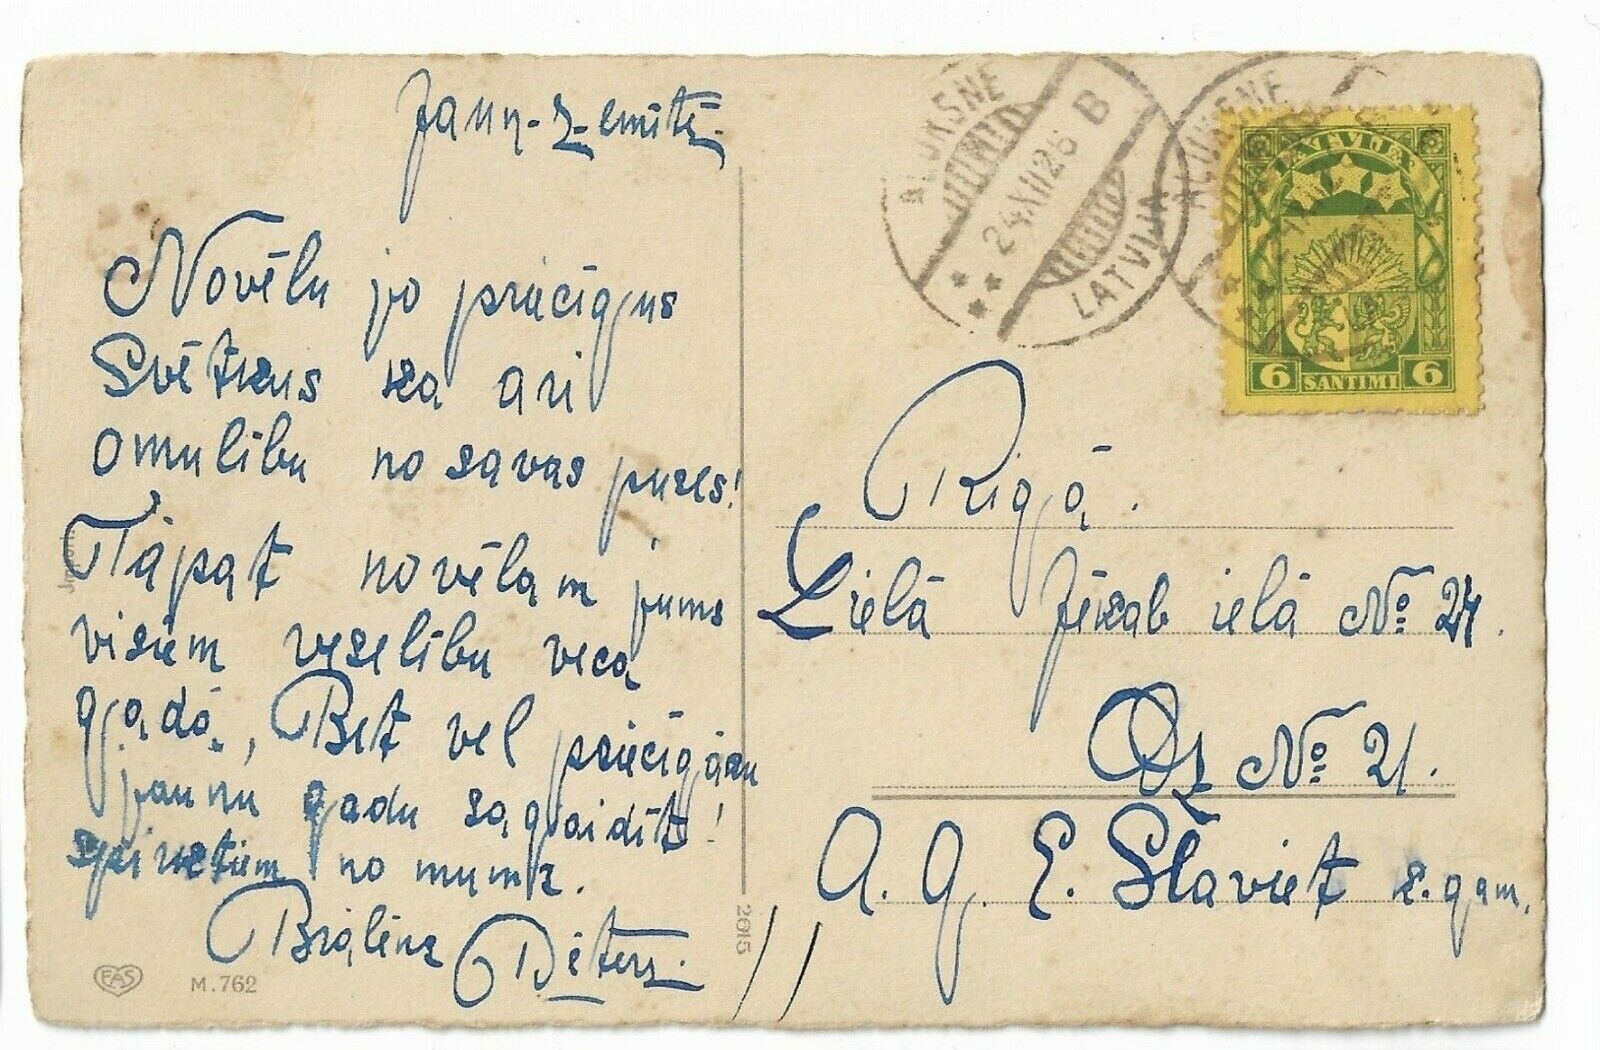 Jaun-Zemīti.
Novēlu jo priecīgus
Svētkus ka ari
omulību no savas puses!
Tāpat novēlam jums
visiem veselību veca
gadā, Bet vel priecīgāku
jaunu gadu sagaidīt!
no mums.
Brālēns Pēters.
EAS
M. 762
2615
ALUKSNE
24.XII.26
B
LATVIJA
ALUKSNE
LATVIJA
6 SANTIMI 6
Rigā.
Lielā Jēkab ielā No 24.
Dz No 21.
A. g. E. Slaviet k.gam.